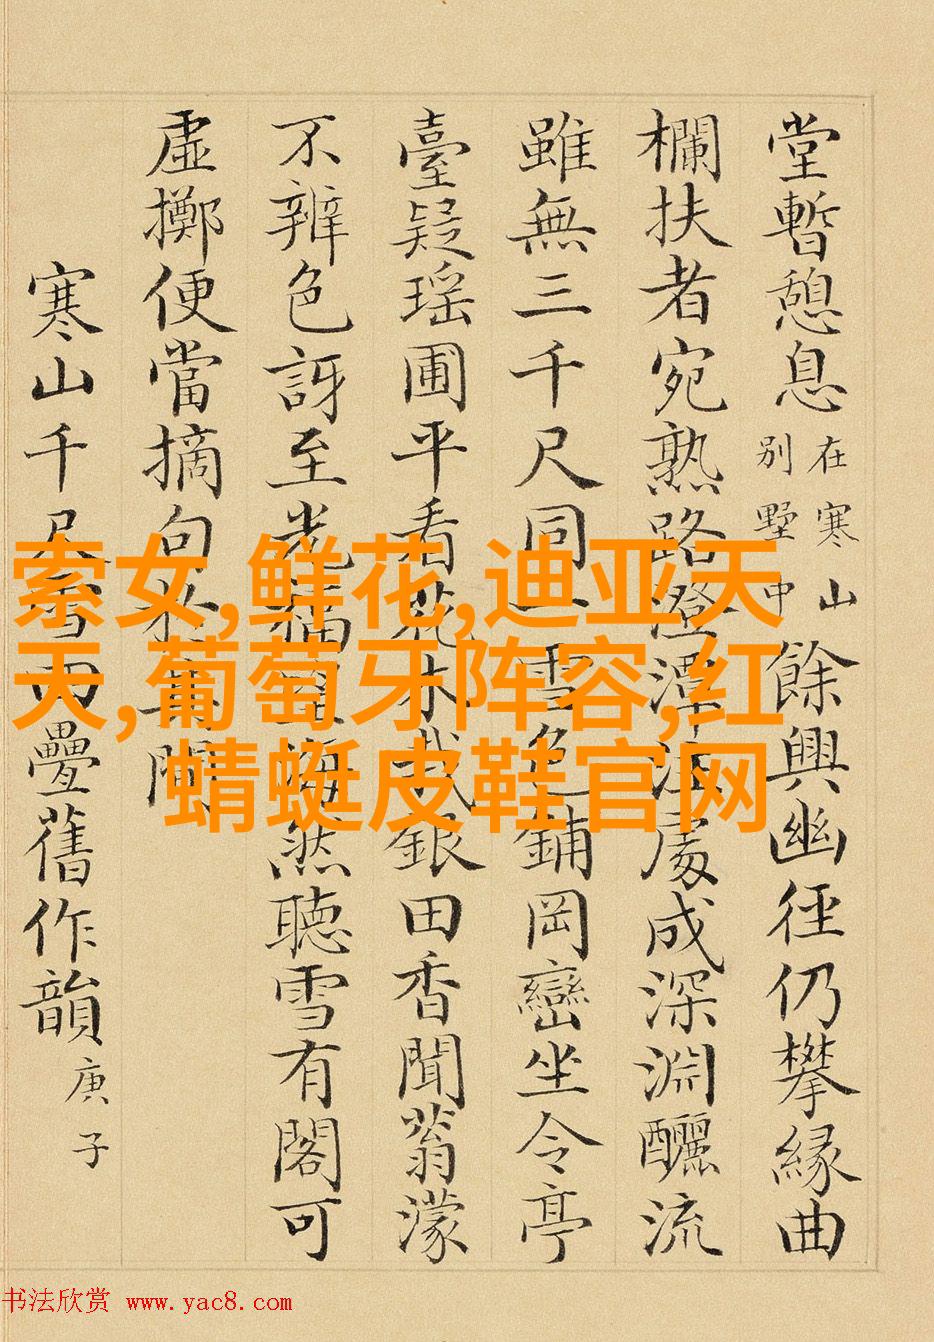 堂暫憩息
在寒山
別墅中
餘興幽徑仍攀緣曲
欄扶者宛熟路澄潭注處成深淵釃流
雖無三千尺同一雪色鋪岡巒坐令亭
臺疑瑤圃平看花木銀田香聞蓊濛
不辨色訝至光福然聽雪有閣可
虛擲便當摘句於其間
寒山千尺雪疊舊作韻
庚子
索女,鲜花,迪亚天
天,葡萄牙阵容,红
蜻蜓皮鞋官网
书法欣赏 www.yac8.com